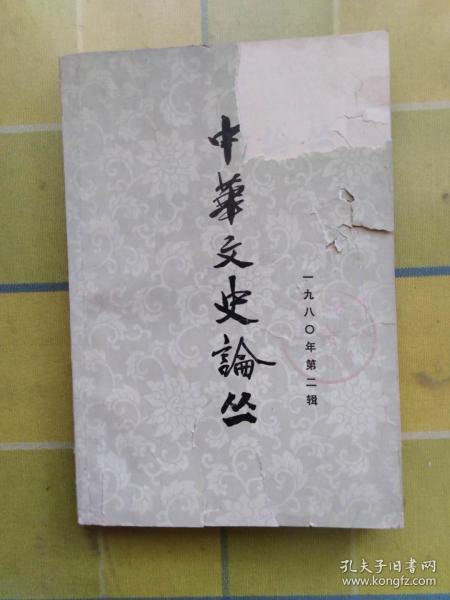 中華文史論丛
一九八〇年第二辑
孔夫子旧书网
www.kongfz.com